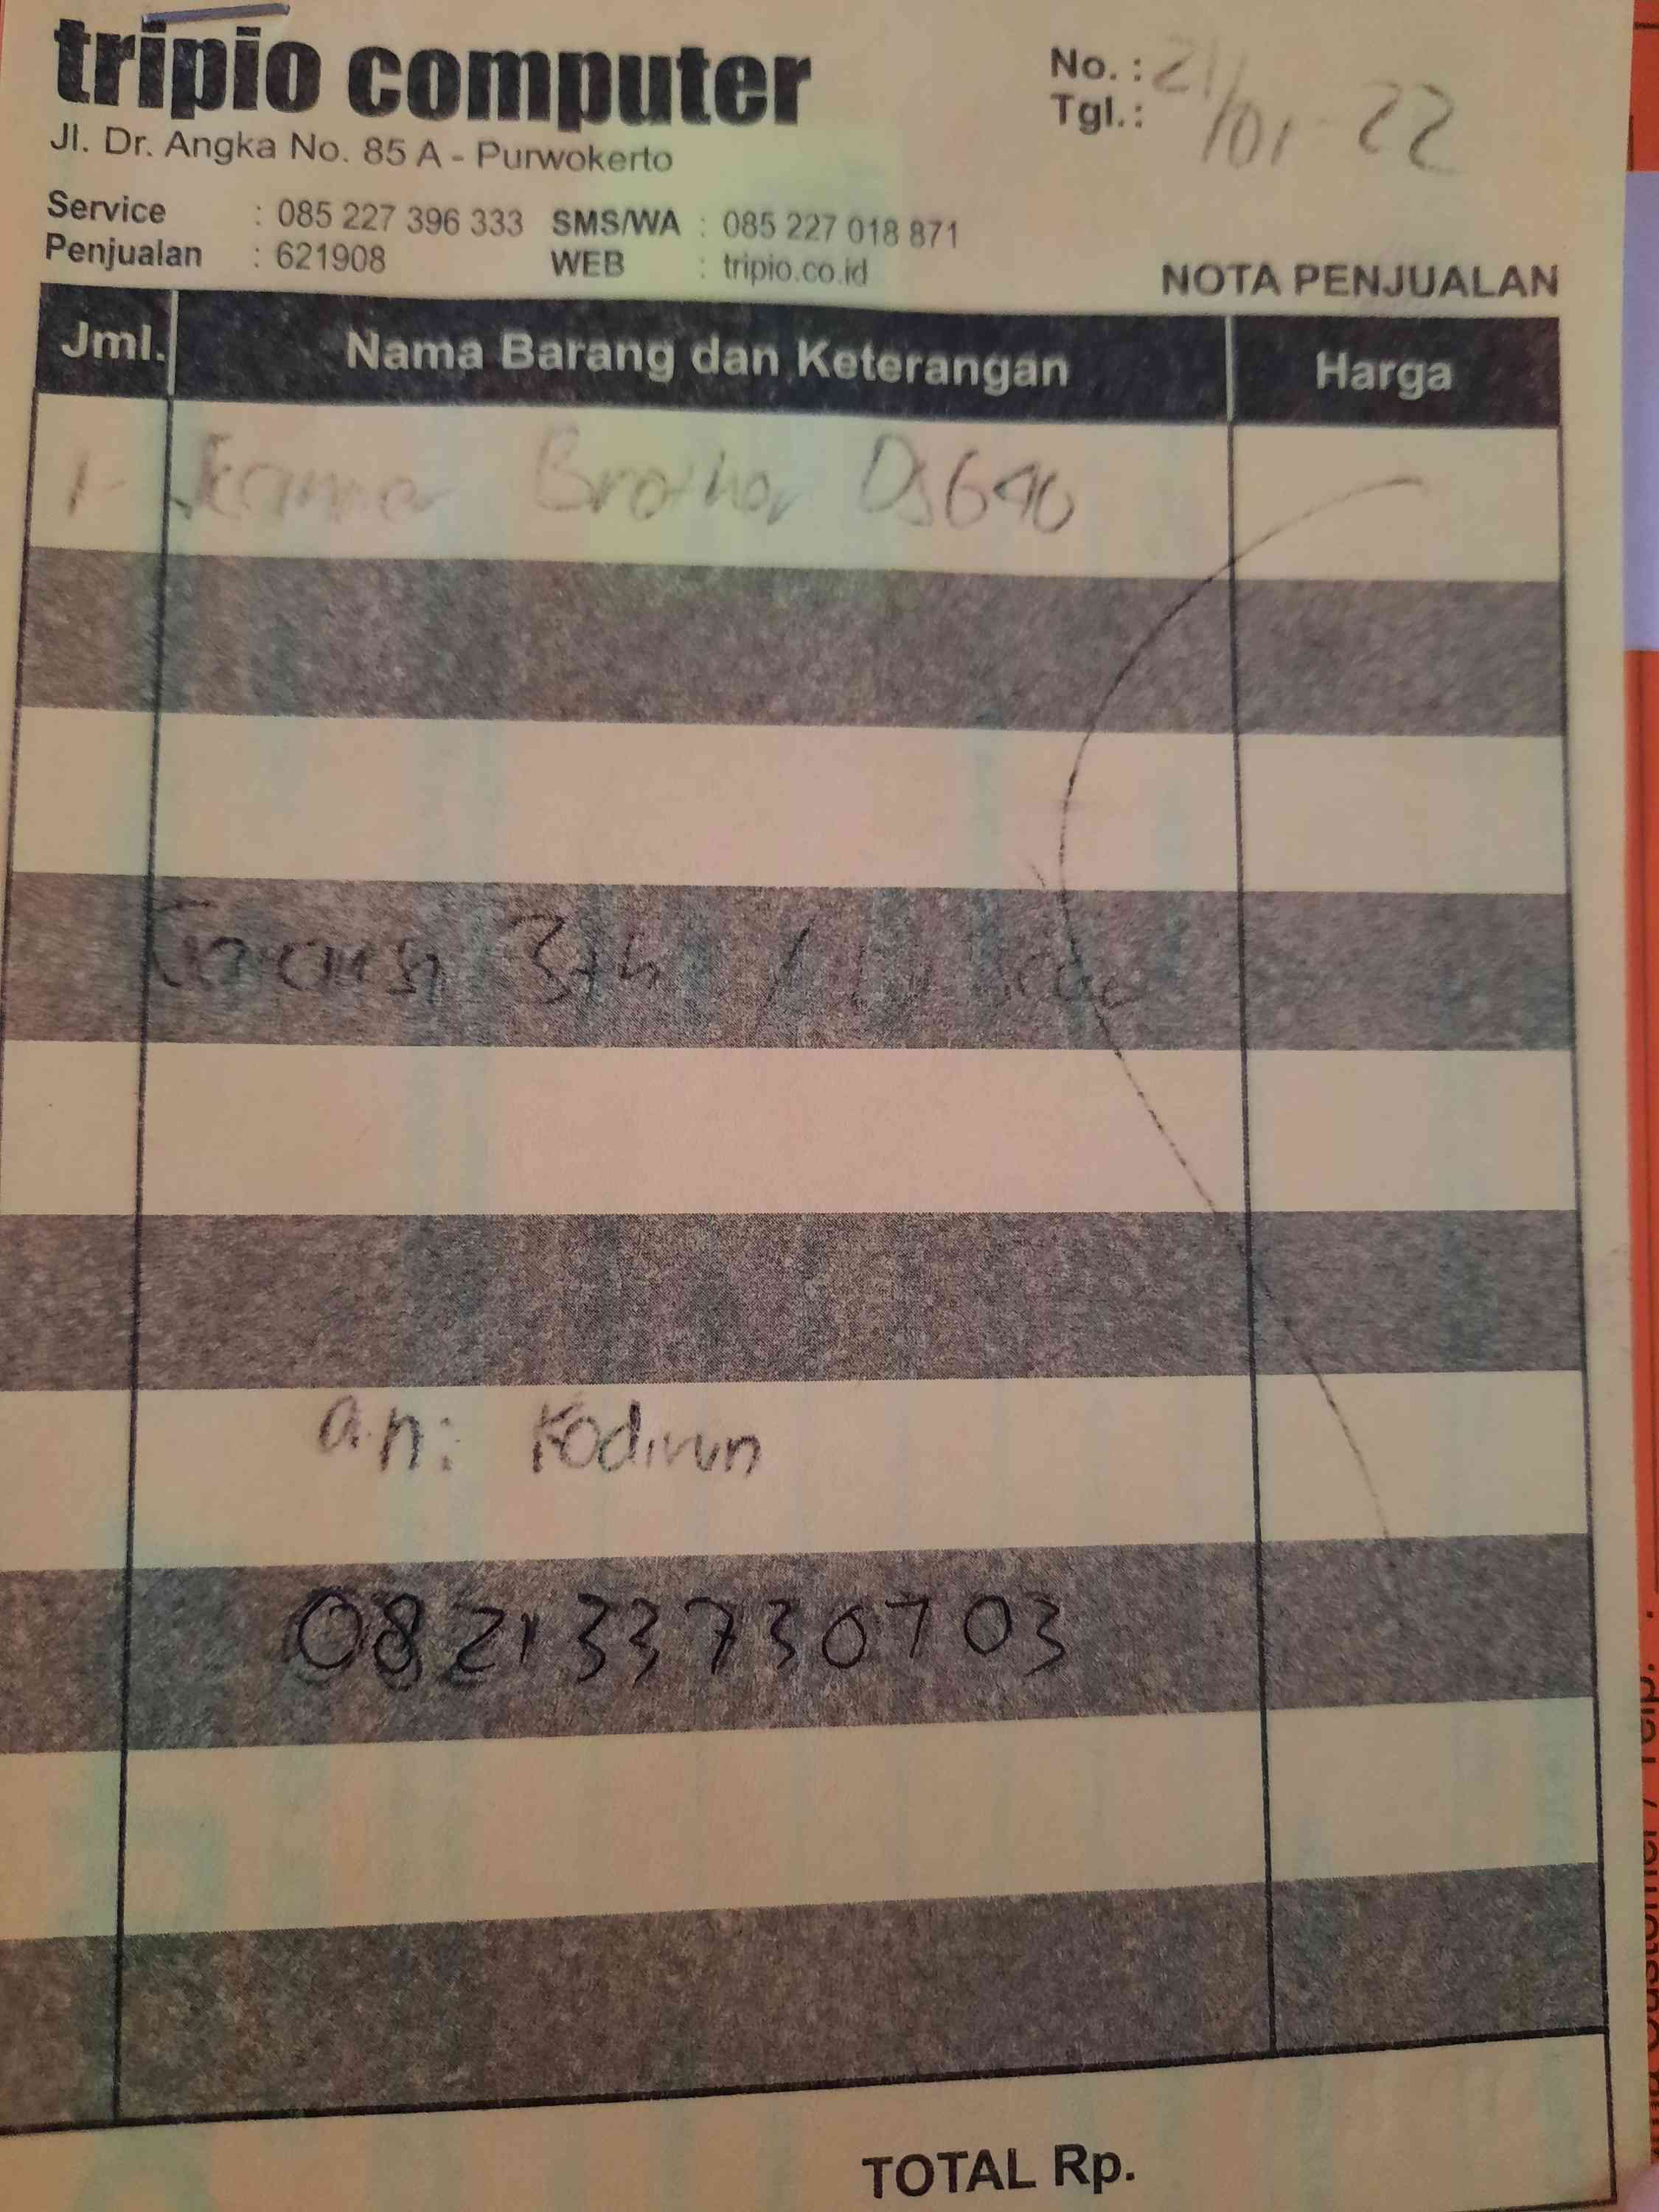 tripio computer
Jl. Dr. Angka No. 85 A - Purwokerto
No. : 21/01-22
Tgl. :
Service : 085 227 396 333 SMS/WA : 085 227 018 871
Penjualan : 621908 WEB : tripio.co.id
NOTA PENJUALAN
Jml. Nama Barang dan Keterangan Harga
1 Scanner Brother Ds640
Garansi 3th /
a.n: Kodirun
082133730703
TOTAL Rp.
Customer / Telp. :